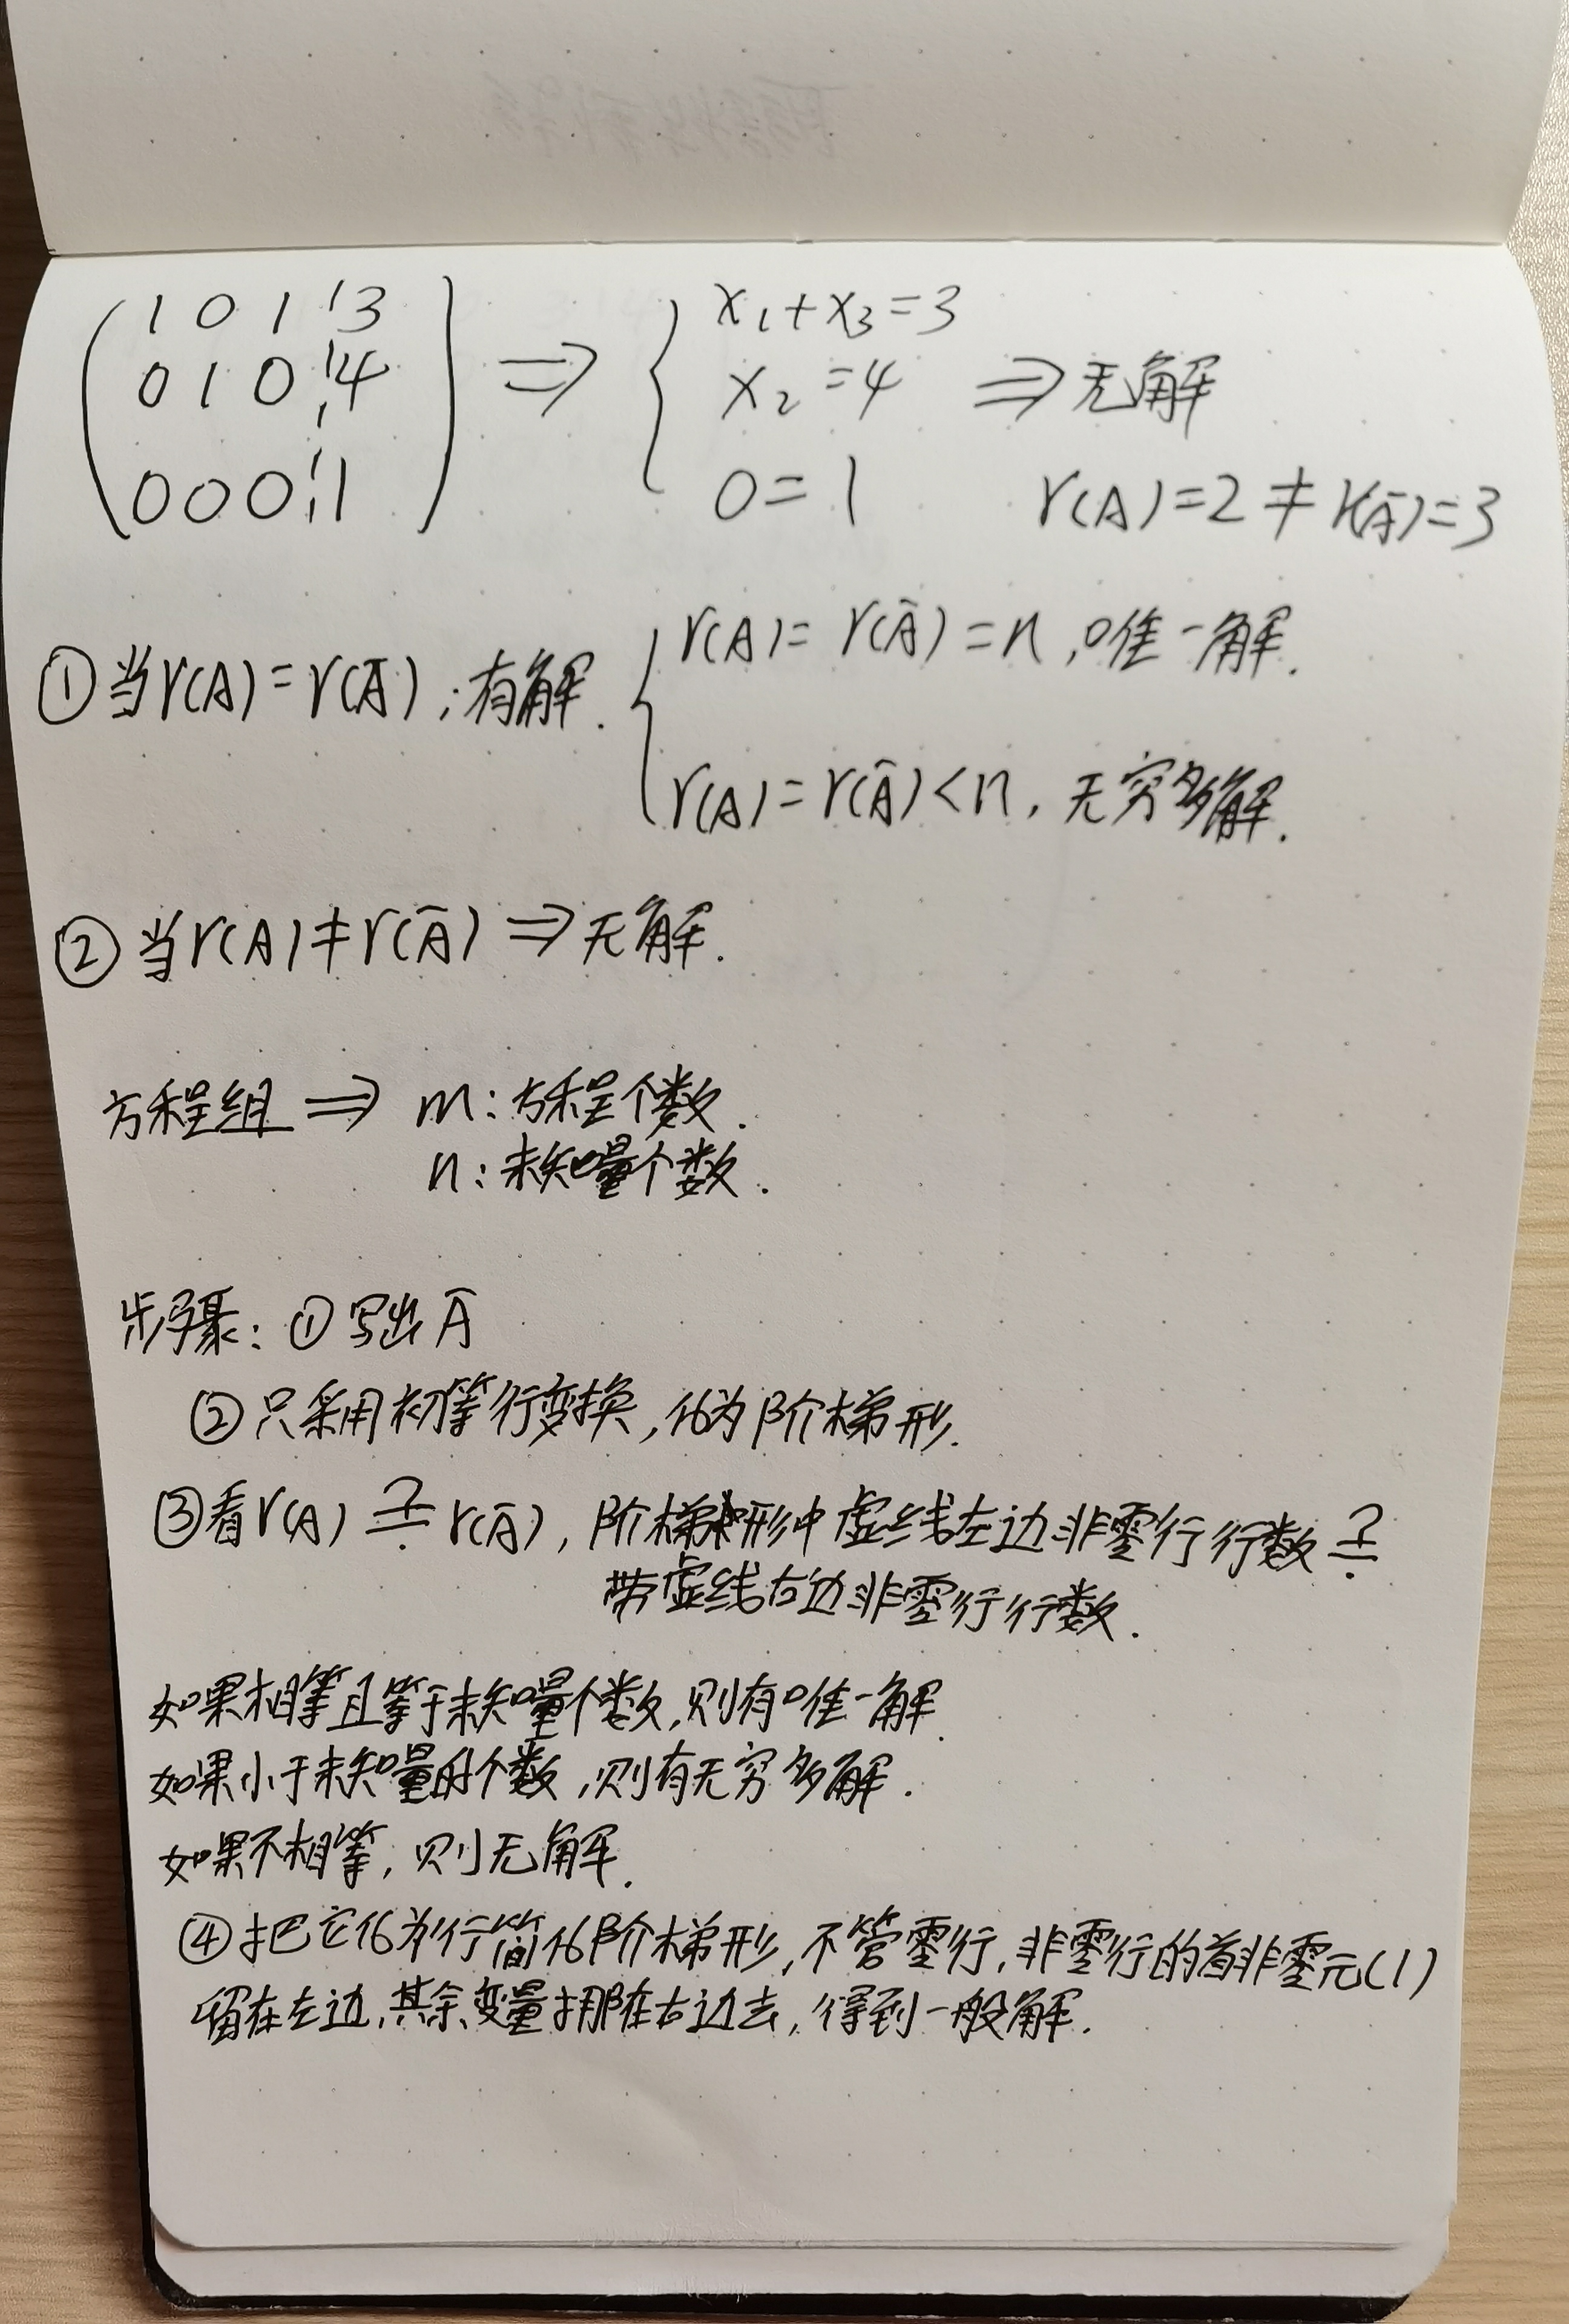 1 0 1 ¦ 3
0 1 0 ¦ 4
0 0 0 ¦ 1
⇒
x₁+x₃=3
x₂=4
0=1
⇒无解
r(A)=2≠r(Ā)=3
①当r(A)=r(Ā),有解.
r(A)=r(Ā)=n,唯一解.
r(A)=r(Ā)<n,无穷多解.
②当r(A)≠r(Ā)⇒无解.
方程组⇒m:方程个数.
n:未知量个数.
步骤:①写出Ā
②只采用初等行变换,化为阶梯形.
③看r(A)≟r(Ā),阶梯形中虚线左边非零行行数≟
带虚线右边非零行行数.
如果相等且等于未知量个数,则有唯一解.
如果小于未知量的个数,则有无穷多解.
如果不相等,则无解.
④把它化为行简化阶梯形,不管零行,非零行的首非零元(1)
留在左边,其余变量挪在右边去,得到一般解.